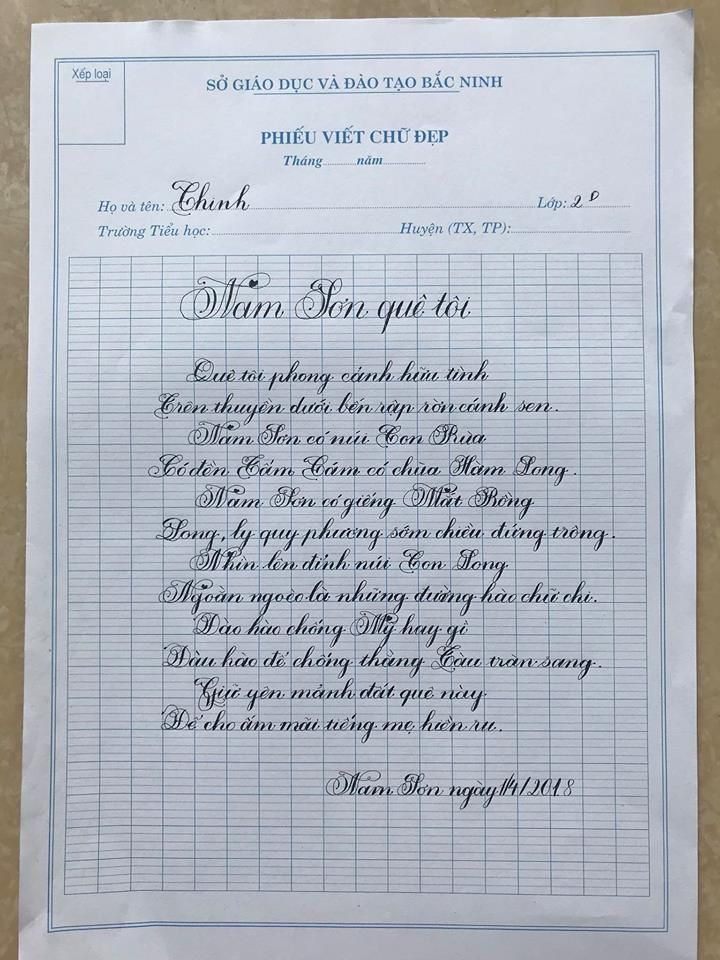 Xếp loại
SỞ GIÁO DỤC VÀ ĐÀO TẠO BẮC NINH
PHIẾU VIẾT CHỮ ĐẸP
Tháng..........năm.............
Họ và tên: Chinh Lớp: 2D
Trường Tiểu học: Huyện (TX, TP):
Nam Sơn quê tôi
Quê tôi phong cảnh hữu tình
Trên thuyền dưới bến rập rờn cánh sen.
Nam Sơn có núi Con Rùa
Có đền Tấm Cám có chùa Hàm Long.
Nam Sơn có giếng Mắt Rồng
Long, ly quy phương sớm chiều đứng trông.
Nhìn lên đỉnh núi Con Long
Ngoằn ngoèo là những đường hào chữ chi.
Đào hào chống Mỹ hay gì
Đàu hào để chống thằng Tàu tràn sang.
Giữ yên mảnh đất quê này
Để cho ấm mãi tiếng mẹ hiền ru.
Nam Sơn ngày 1/4/2018